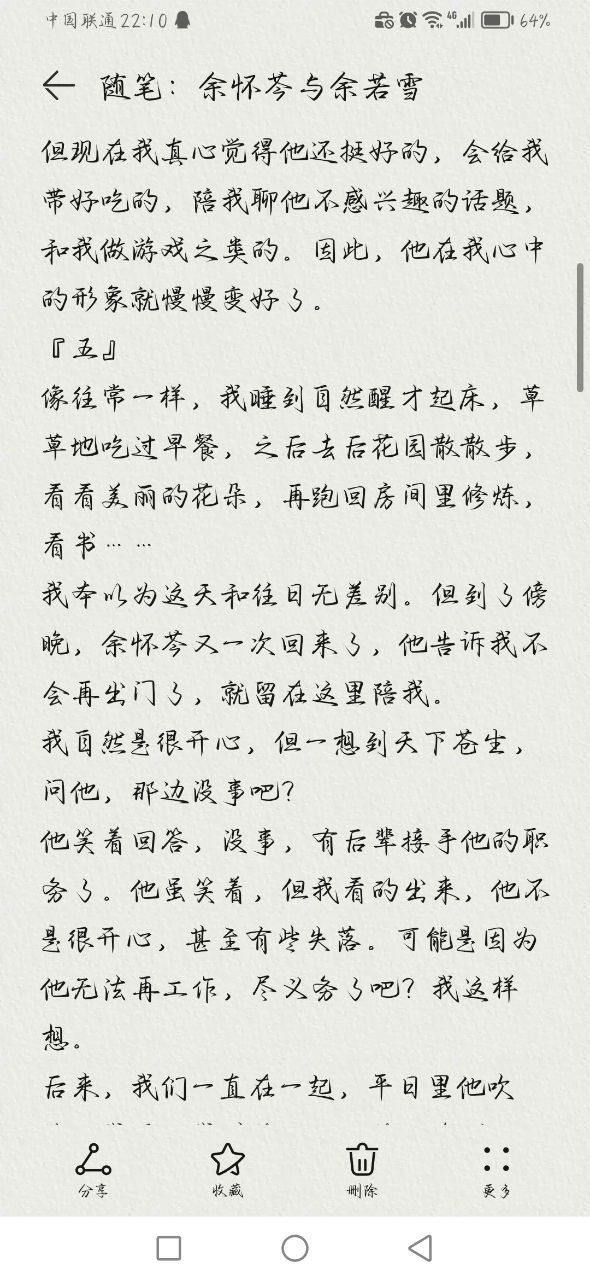 中国联通 22:10 4G 64%
随笔：余怀苓与余若雪
但现在我真心觉得他还挺好的，会给我
带好吃的，陪我聊他不感兴趣的话题，
和我做游戏之类的。因此，他在我心中
的形象就慢慢变好了。
『五』
像往常一样，我睡到自然醒才起床，草
草地吃过早餐，之后去后花园散散步，
看看美丽的花朵，再跑回房间里修炼，
看书……
我本以为这天和往日无差别。但到了傍
晚，余怀苓又一次回来了，他告诉我不
会再出门了，就留在这里陪我。
我自然是很开心，但一想到天下苍生，
问他，那边没事吧？
他笑着回答，没事，有后辈接手他的职
务了。他虽笑着，但我看的出来，他不
是很开心，甚至有些失落。可能是因为
他无法再工作，尽义务了吧？我这样
想。
后来，我们一直在一起，平日里他吹
分享 收藏 删除 更多